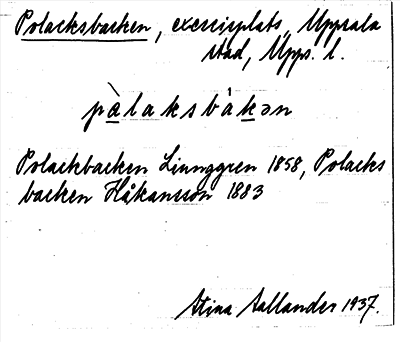 Polacksbacken, exercisplats, Uppsala
stad, Upps. l.
pàlaksbàkən
Polackbacken Liunggren 1858, Polacks
backen Håkansson 1883
Stina Sallander 1937.